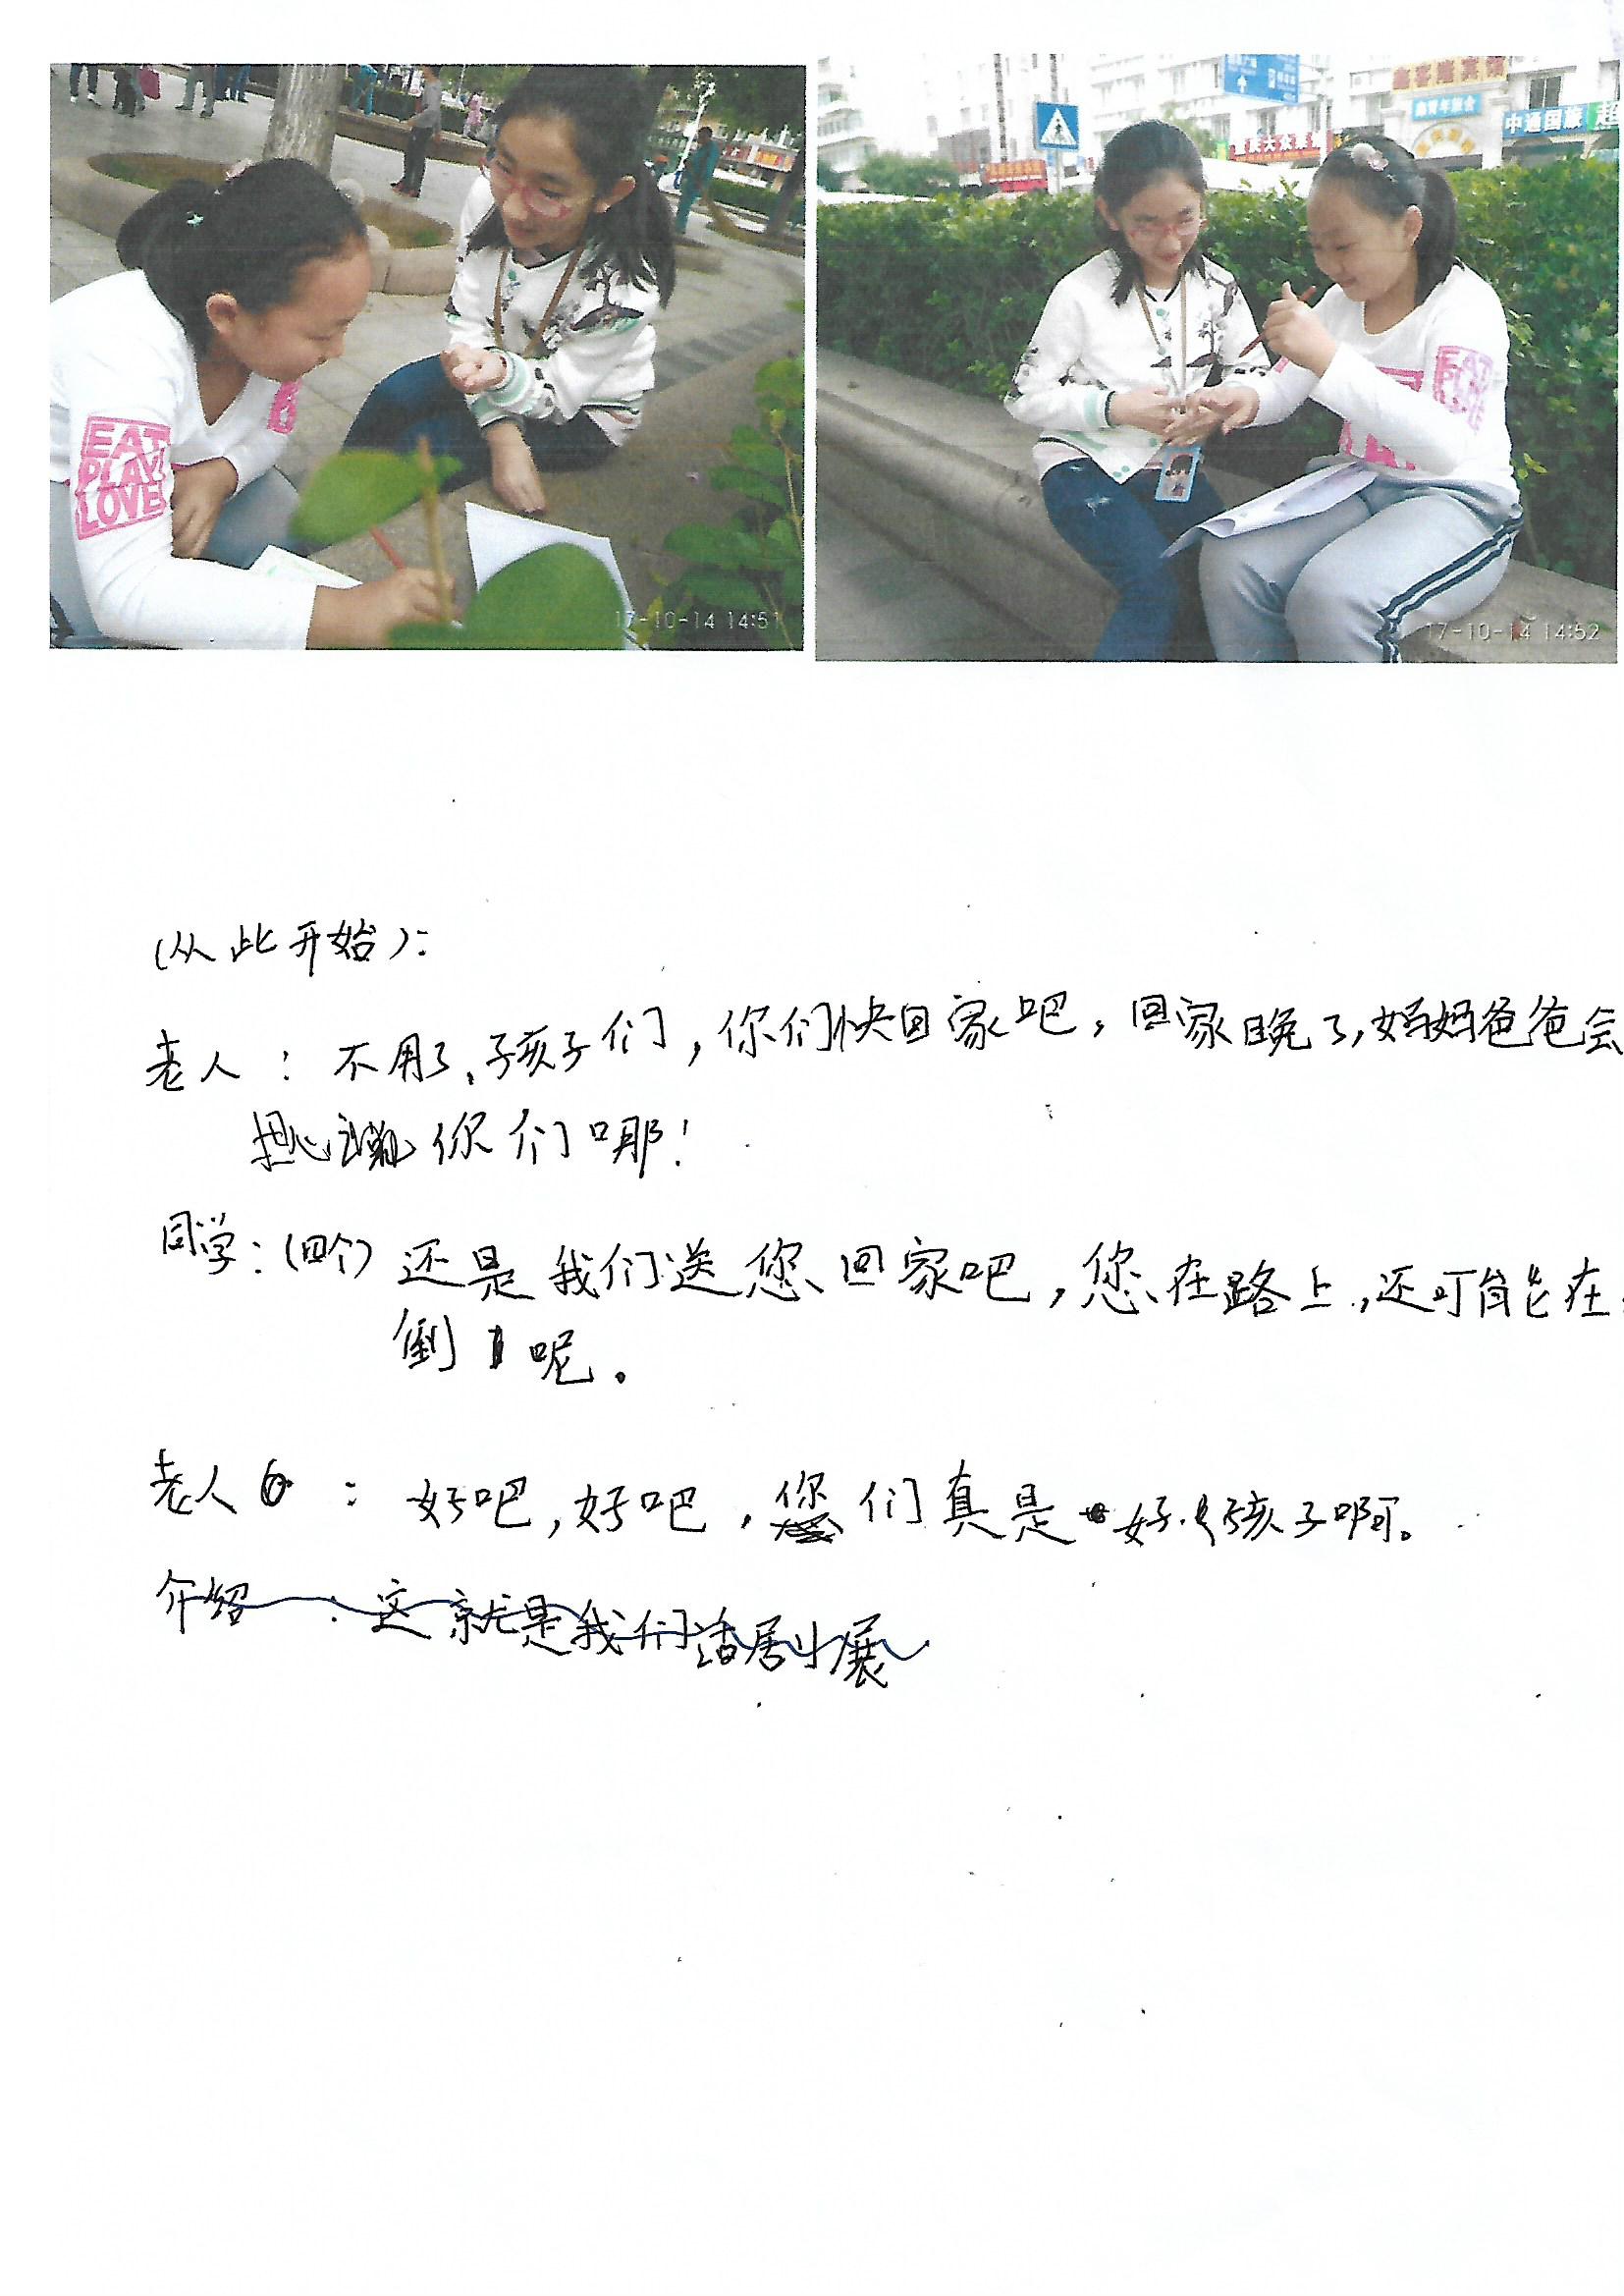 EAT
PLAY
LOVE
17-10-14 14:51
中通国旅
超
EAT
17-10-14 14:52
(从此开始):
老人：不用了,孩子们,你们快回家吧,回家晚了,妈妈爸爸会
担心 你们哪!
同学:(四个)还是我们送您回家吧,您在路上,还可能在
倒 呢。
老人：好吧,好吧,你们真是好孩子啊。
介绍：这就是我们话剧小展